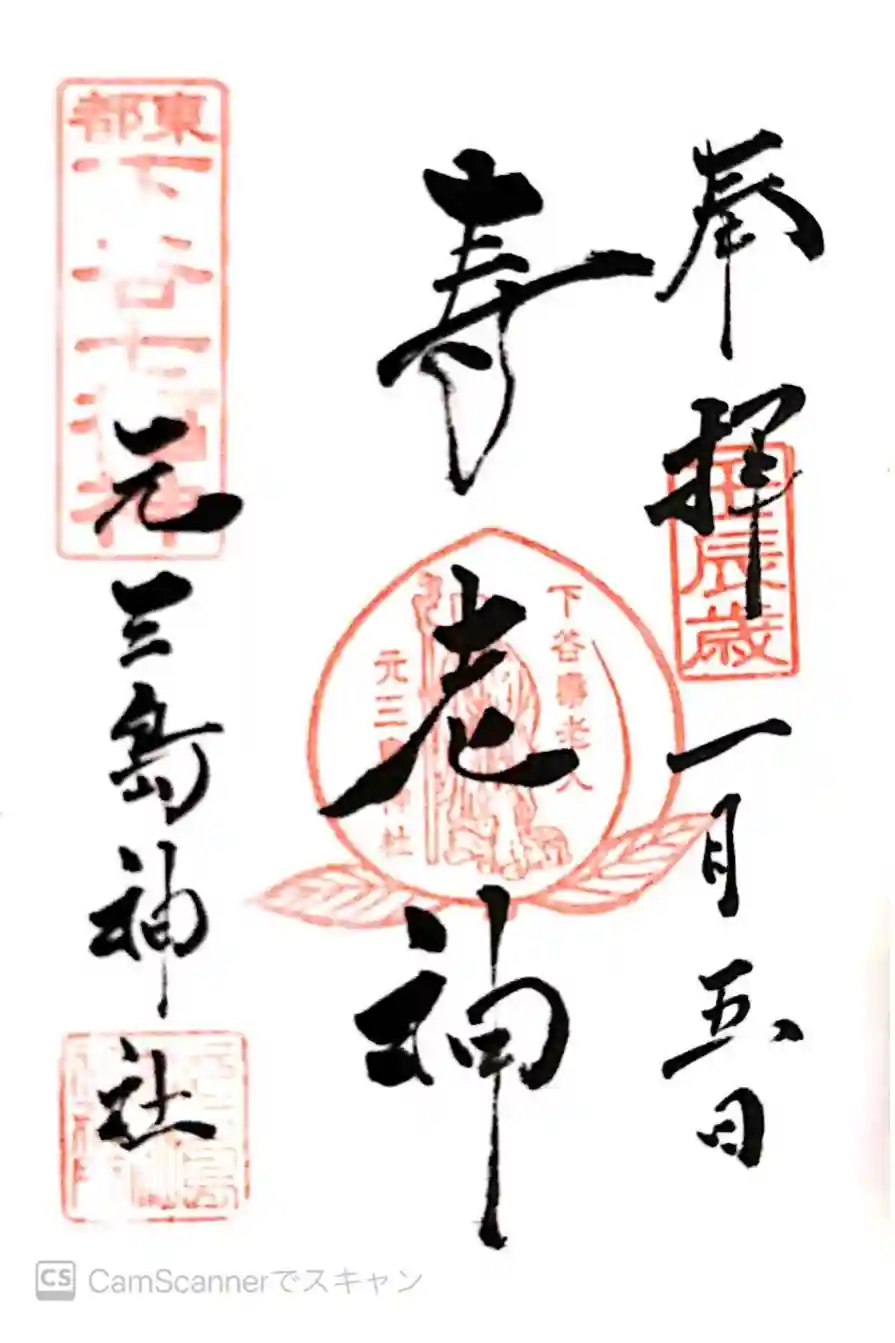 奉拝
一月五日
辰歳
寿老神
下谷壽老人
元三島神社
東都
下谷七福神
元三島神社
CS CamScannerでスキャン